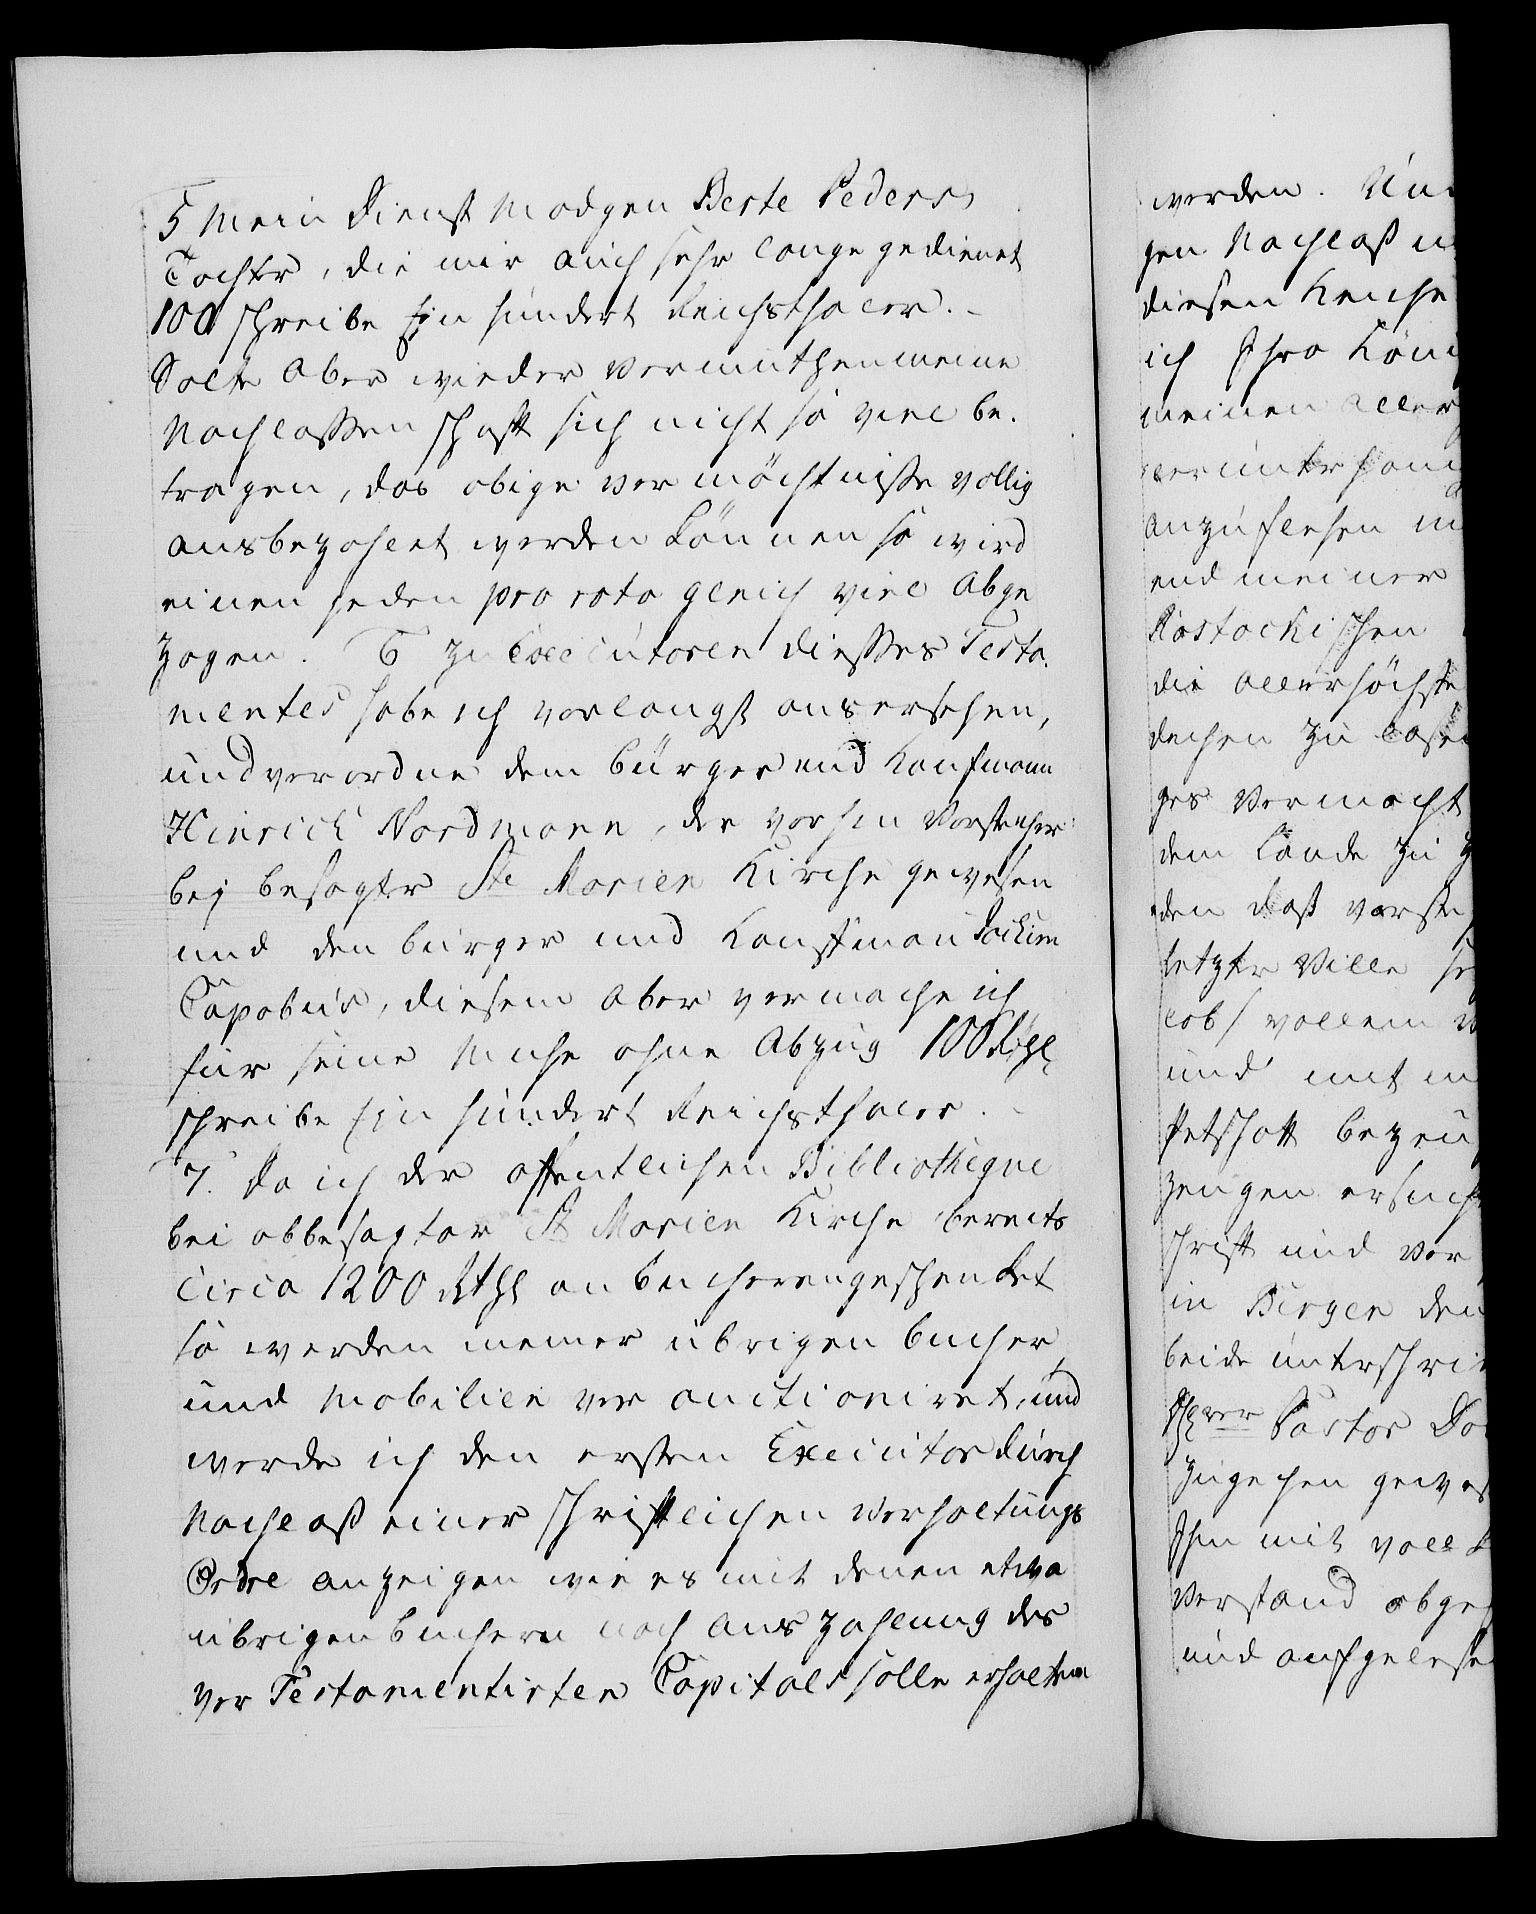 5 Mein Dienst Madgen Berte Peders
Tochter, die mir auch sehr lange gedienet
100 schreibe Ein hundert Reichsthaler.-
Solte aber wieder vermuthen meine
Nachlassenschaft sich nicht so viel be-
tragen, das obige vermächtnisse vollig
ausbezahlet werden können so wird
einen jeden pro rata gleich viel abge
zogen. 6 Zu Executoren diesses Testa-
mentes habe ich vorlangst ausersehen,
und verordne dem bürger und Kaufmann
Hinrich Nordmann, der vorhin Vorsteher
bey besagter Ste Marien Kirche gewesen
und den bürger und Kauffman Jochim
Capobus, diesem aber vermache ich
für seine Muhe ohne Abzug 100 Rthl
schreibe Ein hundert Reichsthaler.-
7. Da ich der offentlichen Bibliotheque
bei obbesagter St Marien Kirche bereits
Circa 1200 Rthl an buchern geschenket
so werden meiner übrigen bucher,
und Mobilien verauctioniret, und
werde ich den ersten Executor durch
Nachlaß einer schriftlichen Verhaltungs
Ordre anzeigen wie es mit denen etwa
übrigen buchern nach auszahlung des
ver Testamentirten Capitals solle erhalten
werden. Un
gen Nachlaß u
diesen Reiche
ich Ihro Köni
meinen aller
unterthani
anzuflehen u
und meiner
Rostockischen
die allerhöchste
deihen zu lassen
ges Vermächt
dem Lande zu
den daß vorste
letzter Wille
und mit m
Petschaft bezeu
zeugen ersuch
schrift und ver
in Birgen den
beide unterschri
Pastor Do
zugehen gewes
Ihn mit voll
Verstand abge
und aufgelese